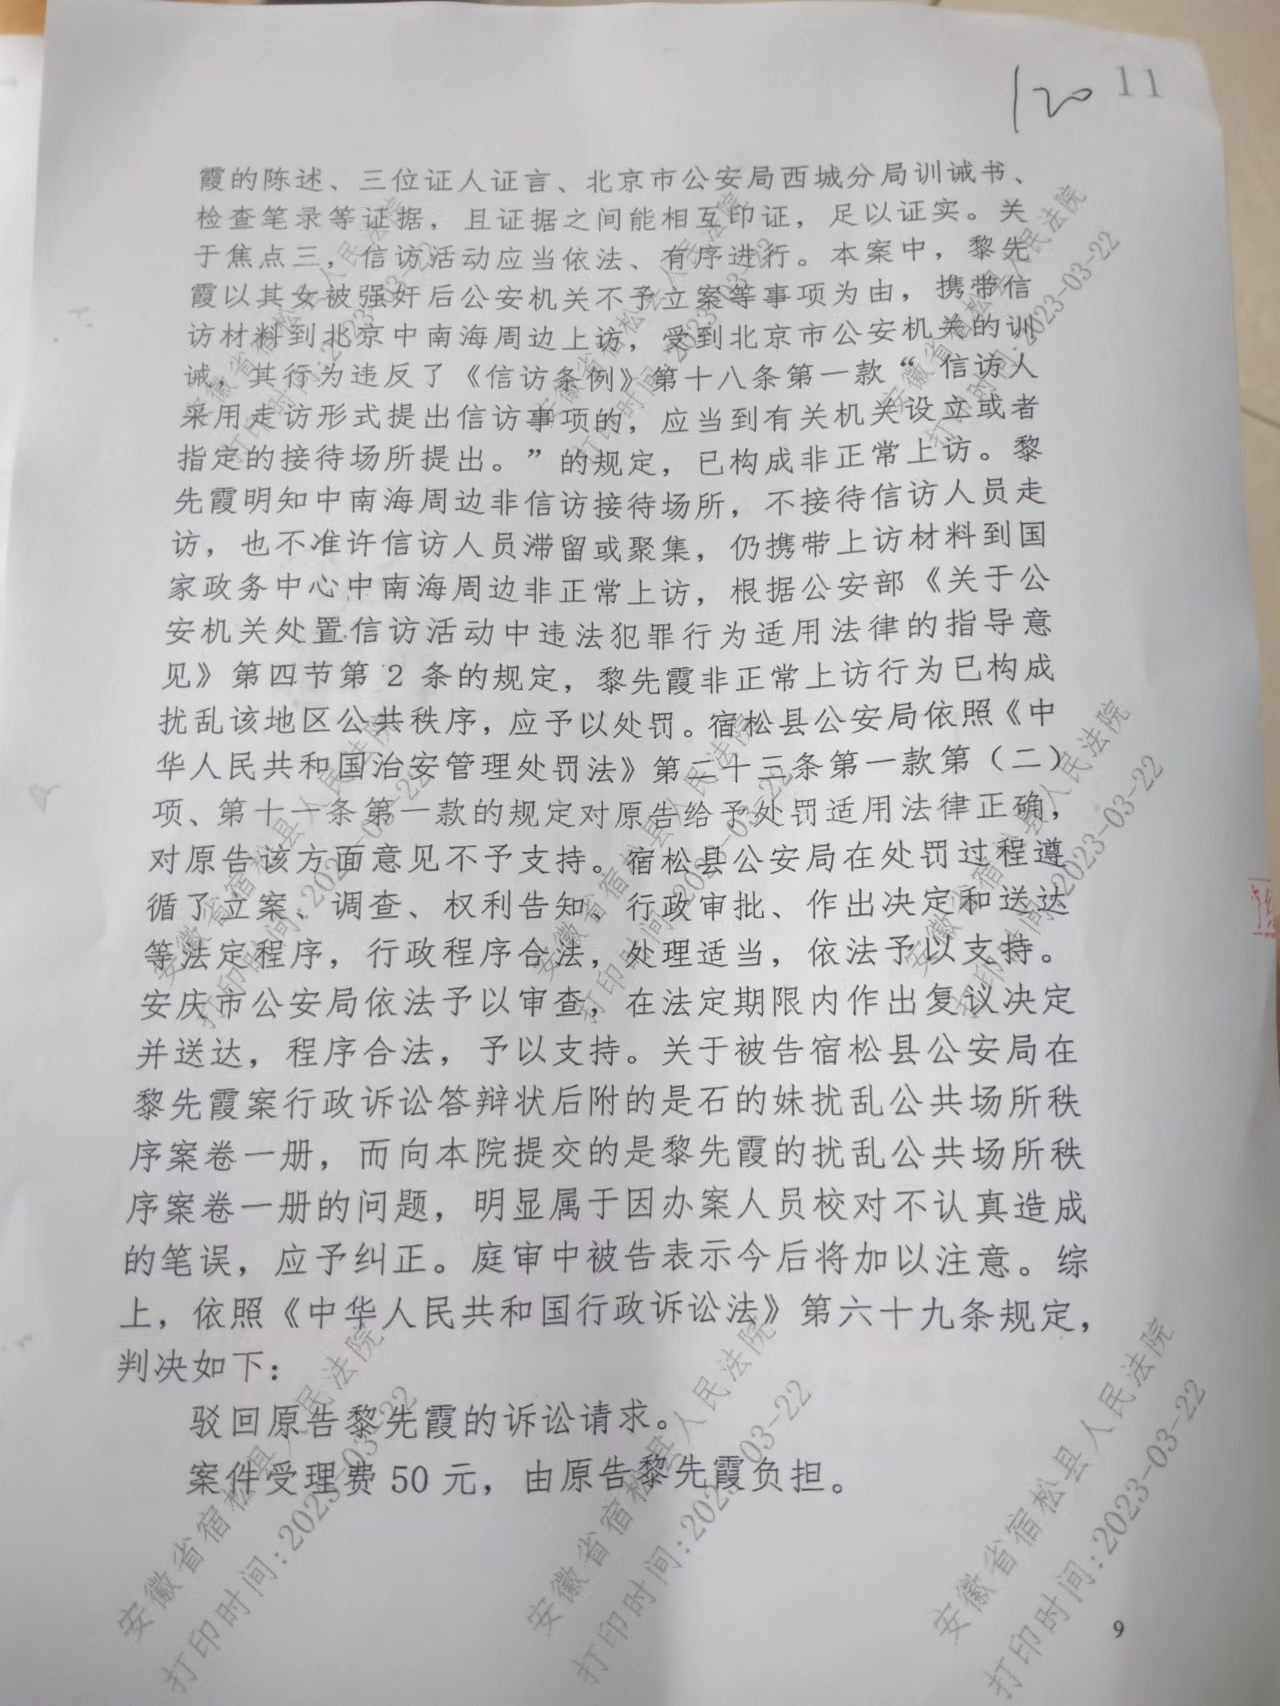 120 11
霞的陈述、三位证人证言、北京市公安局西城分局训诫书、
检查笔录等证据，且证据之间能相互印证，足以证实。关
于焦点三，信访活动应当依法、有序进行。本案中，黎先
霞以其女被强奸后公安机关不予立案等事项为由，携带信
访材料到北京中南海周边上访，受到北京市公安机关的训
诫，其行为违反了《信访条例》第十八条第一款“信访人
采用走访形式提出信访事项的，应当到有关机关设立或者
指定的接待场所提出。”的规定，已构成非正常上访。黎
先霞明知中南海周边非信访接待场所，不接待信访人员走
访，也不准许信访人员滞留或聚集，仍携带上访材料到国
家政务中心中南海周边非正常上访，根据公安部《关于公
安机关处置信访活动中违法犯罪行为适用法律的指导意
见》第四节第 2 条的规定，黎先霞非正常上访行为已构成
扰乱该地区公共秩序，应予以处罚。宿松县公安局依照《中
华人民共和国治安管理处罚法》第二十三条第一款第（二）
项、第十一条第一款的规定对原告给予处罚适用法律正确，
对原告该方面意见不予支持。宿松县公安局在处罚过程遵
循了立案、调查、权利告知，行政审批、作出决定和送达
等法定程序，行政程序合法，处理适当，依法予以支持。
安庆市公安局依法予以审查，在法定期限内作出复议决定
并送达，程序合法，予以支持。关于被告宿松县公安局在
黎先霞案行政诉讼答辩状后附的是石的妹扰乱公共场所秩
序案卷一册，而向本院提交的是黎先霞的扰乱公共场所秩
序案卷一册的问题，明显属于因办案人员校对不认真造成
的笔误，应予纠正。庭审中被告表示今后将加以注意。综
上，依照《中华人民共和国行政诉讼法》第六十九条规定，
判决如下：
驳回原告黎先霞的诉讼请求。
案件受理费 50 元，由原告黎先霞负担。
9
安徽省宿松县人民法院
打印时间:2023-03-22
安徽省宿松县人民法院
打印时间:2023-03-22
安徽省宿松县人民法院
打印时间:2023-03-22
安徽省宿松县人民法院
打印时间:2023-03-22
安徽省宿松县人民法院
打印时间:2023-03-22
安徽省宿松县人民法院
打印时间:2023-03-22
安徽省宿松县人民法院
打印时间:2023-03-22
安徽省宿松县人民法院
打印时间:2023-03-22
安徽省宿松县人民法院
打印时间:2023-03-22